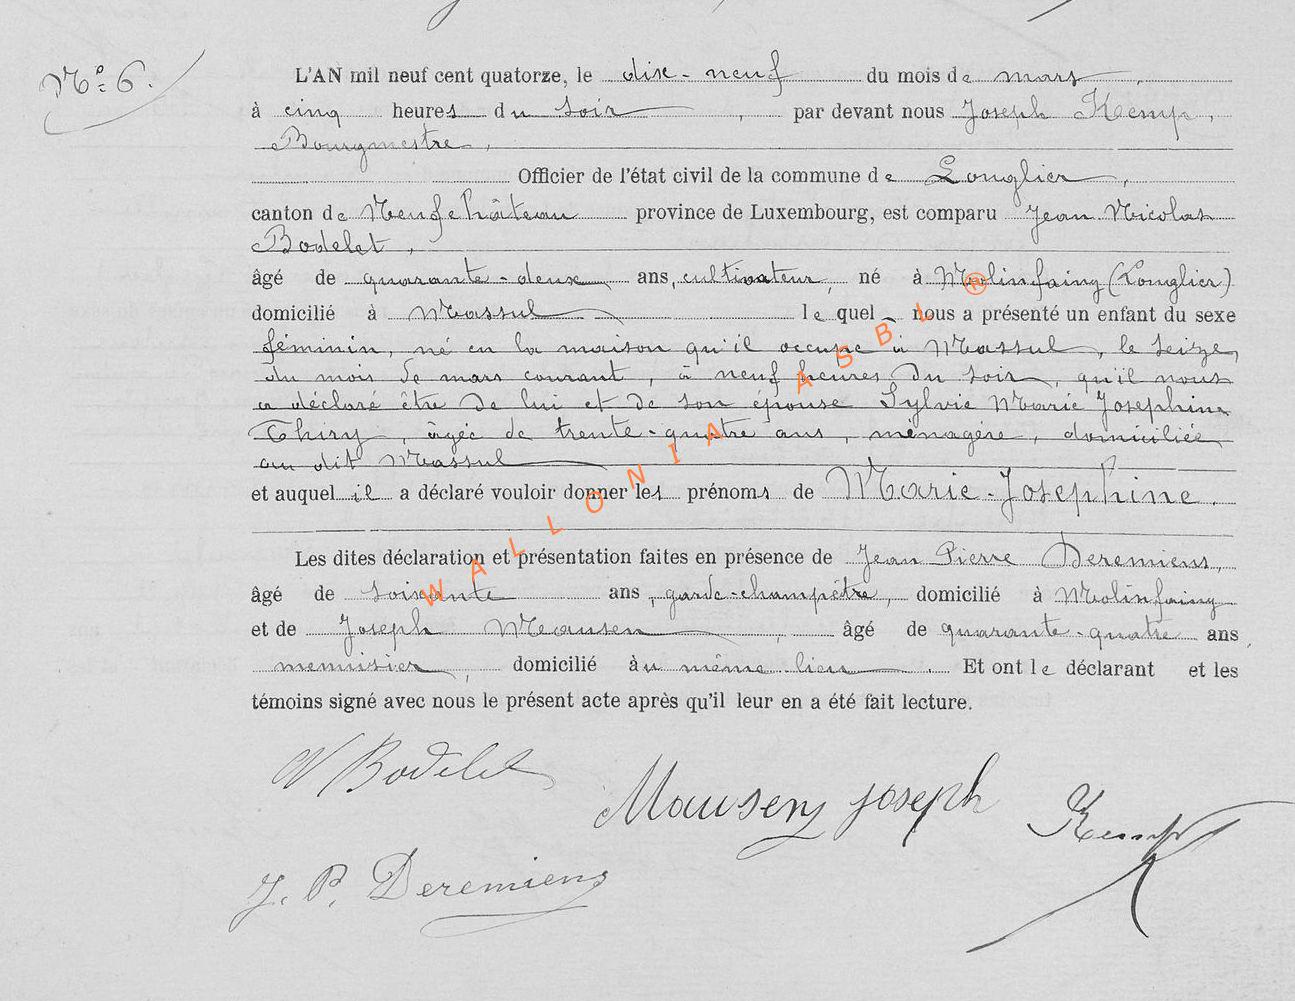 N° 6.
L'AN mil neuf cent quatorze, le dix-neuf du mois de mars,
à cinq heures du soir, par devant nous Joseph Kemp,
Bourgmestre,
Officier de l'état civil de la commune de Longlier,
canton de Neufchâteau province de Luxembourg, est comparu Jean Nicolas
Bodelet,
âgé de quarante-deux ans, cultivateur, né à Molinfaing (Longlier)
domicilié à Massul lequel nous a présenté un enfant du sexe
féminin, né en la maison qu'il occupe à Massul, le seize
du mois de mars courant, à neuf heures du soir, qu'il nous
a déclaré être de lui et de son épouse Sylvie Marie Josephine
Thiry, âgée de trente-quatre ans, ménagère, domiciliée
au dit Massul
et auquel il a déclaré vouloir donner les prénoms de Marie-Josephine.
Les dites déclaration et présentation faites en présence de Jean Pierre Deremiens,
âgé de soixante ans, garde-champêtre, domicilié à Molinfaing
et de Joseph Mausen, âgé de quarante-quatre ans,
menuisier, domicilié au même lieu. Et ont le déclarant et les
témoins signé avec nous le présent acte après qu'il leur en a été fait lecture.
N Bodelet
Mausen Joseph
Kemp
J. P. Deremiens
WALLONIA ASBL ®